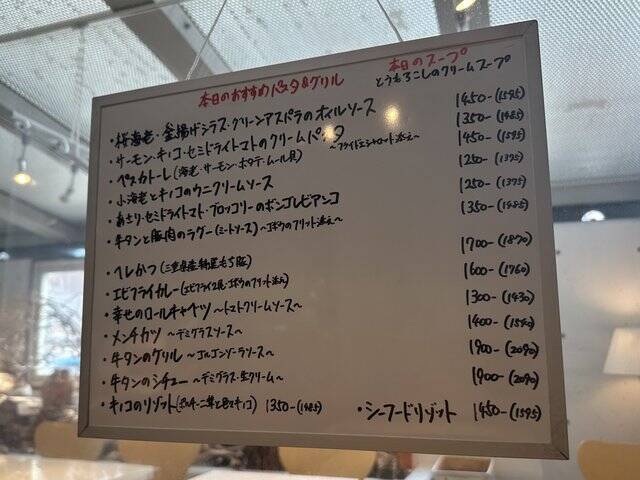 本日のおすすめ パスタ&グリル
本日のスープ
とうもろこしのクリームスープ
・桜海老・釜揚げシラス・グリーンアスパラのオイルソース 1450-(1595)
・サーモン・キノコ・セミドライトマトのクリームパスタ 1350-(1485)
～フライドエシャロット添え～
・ペスカトーレ(海老・サーモン・ホタテ・ムール貝) 1450-(1595)
・小海老とキノコのウニクリームソース 1250-(1375)
・あさり・セミドライトマト・ブロッコリーのボンゴレビアンコ 1250-(1375)
・牛タンと豚肉のラグー(ミートソース)～ゴボウのフリット添え～ 1350-(1485)
・ヘレかつ(三重県産 もち豚) 1700-(1870)
・エビフライカレー(エビフライ2尾・ゴボウのフリット添え) 1600-(1760)
・幸せのロールキャベツ～トマトクリームソース～ 1300-(1430)
・メンチカツ～デミグラスソース～ 1400-(1540)
・牛タンのグリル～ゴルゴンゾーラソース～ 1900-(2090)
・牛タンのシチュー～デミグラス・生クリーム～ 1900-(2090)
・キノコのリゾット 1350-(1485) ・シーフードリゾット 1450-(1595)